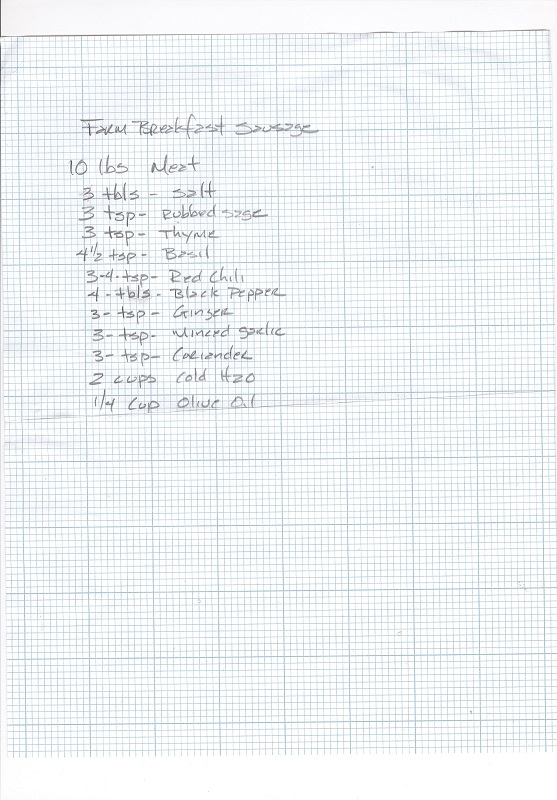 Farm Breakfast Sausage
10 lbs Meat
3 tbls - Salt
3 tsp - Rubbed sage
3 tsp - Thyme
4 1/2 tsp - Basil
3-4-tsp- Red Chili
4 - tbls - Black Pepper
3 - tsp - Ginger
3 - tsp - Minced garlic
3 - tsp - Coriander
2 cups Cold H2O
1/4 Cup Olive Oil